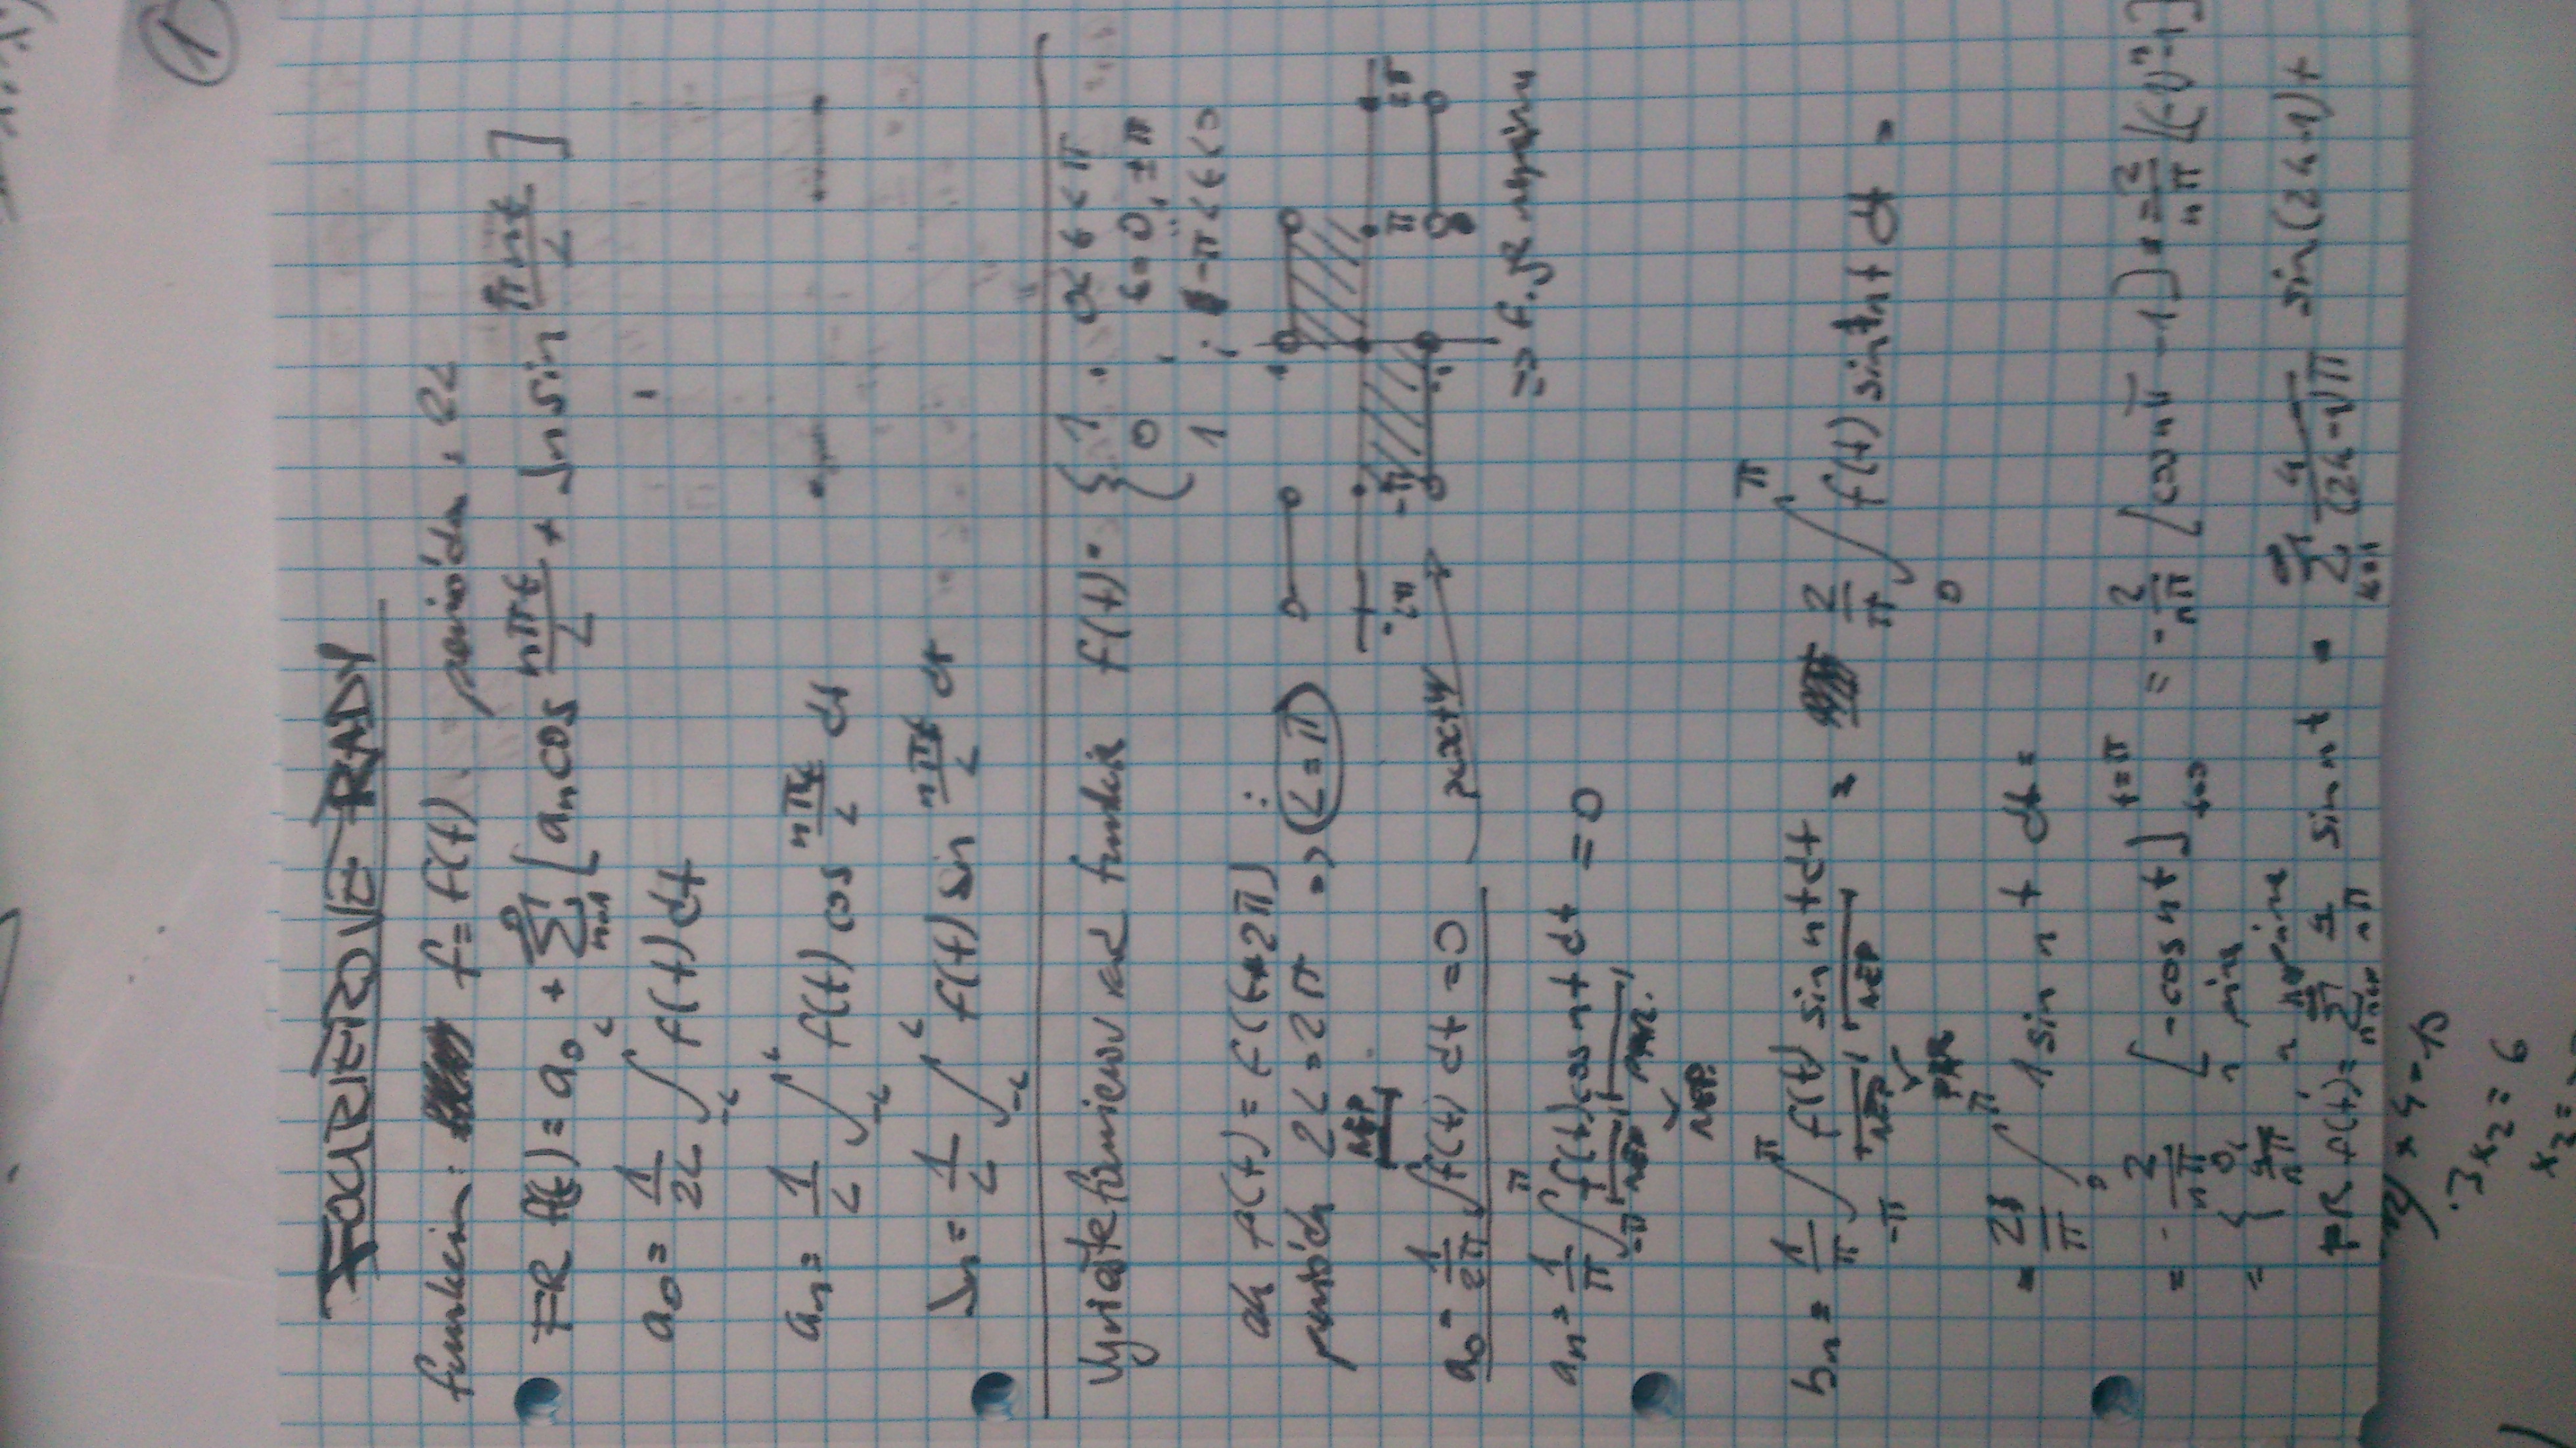 1
FOURIEROVE RADY
funkcia: f = f(t). perióda : 2L
FR f(t) = a₀ + ∑ₙ₌₁^∞ [ aₙ cos nπt/L + bₙ sin πnt/L ]
a₀ = 1/2L ∫₋L^L f(t) dt
aₙ = 1/L ∫₋L^L f(t) cos nπt/L dt
bₙ = 1/L ∫₋L^L f(t) sin nπt/L dt
Vyriešte fourierov rad funkcie f(t) = { 1 , 0 < t < π
0 , t = 0, ±π
1 ; -π < t < 0
ak f(t) = f(t+2π) :
perióda 2L = 2π => L = π
1
-2π -π π 2π
-1
NEP.
a₀ = 1/2π ∫ f(t) dt = 0
=> f. je
aₙ = 1/π ∫₋π^π f(t) cos nt dt = 0
NEP PAR.
NEP.
bₙ = 1/π ∫₋π^π f(t) sin nt dt = 2/π ∫₀^π f(t) sin nt dt =
NEP NEP
PAR
= 2/π ∫₀^π 1 sin nt dt =
= - 2/nπ [-cos nt]ₜ₌₀^t=π = - 2/nπ [cos nπ - 1] = -2/nπ [(-1)ⁿ-1]
= { 0, n párne
4/nπ , n nepárne
FR f(t) = ∑ n nep 4/nπ sin nt = ∑ₖ₌₁^∞ 4/(2k-1)π sin(2k-1)t
x 4 - 10
3x₂ = 6
x₂ =